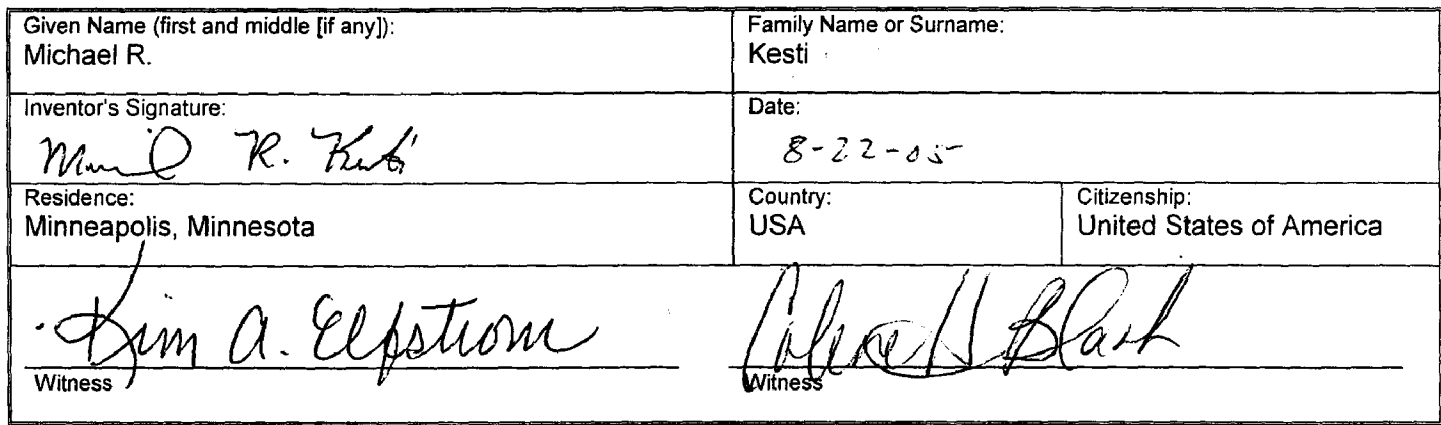 Given Name (first and middle [if any]):
Michael R.
Family Name or Surname:
Kesti
Inventor's Signature:
R. Kesti
Date:
8-22-05
Residence:
Minneapolis, Minnesota
Country:
USA
Citizenship:
United States of America
Kim A. Elfstrom
Witness
Witness